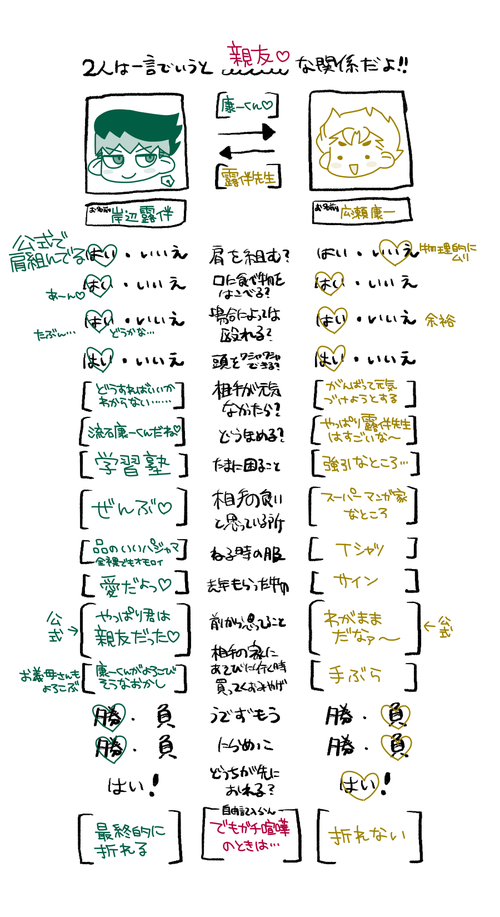 2人は一言でいうと 親友♡ な関係だよ!!
康一くん♡
露伴先生
お名前 岸辺露伴
お名前 広瀬康一
公式で
肩組んでる
はい・いいえ 肩を組む? はい・いいえ
物理的に
ムリ
あーん♡
はい・いいえ
口に食べ物を
はこべる?
はい・いいえ
たぶん… どうかな…
はい・いいえ
場合によっては
殴れる?
はい・いいえ 余裕
はい・いいえ
頭をワシャワシャ
できる?
はい・いいえ
どうすればいいか
わからない……
相手が元気
なかたら?
がんばって元気
づけようとする
流石康一くんだね♡
どうほめる?
やっぱり露伴先生
はすごいな〜
学習塾
たまに困ること
強引なところ…
ぜんぶ♡
相手の良い
と思っている所
スーパーマンガ家
なところ
品のいいパジャマ
全裸でもオモロイ
ねる時の服
Tシャツ
愛だよっ♡
去年もらった中の
サイン
公式→
やっぱり君は
親友だった♡
前から思ってること
わがまま
だなァ〜
←公式
お義母さんも
よろこぶ
康一くんがよろこび
そうなおかし
相手の家に
あそびに行く時
買ってくおみやげ
手ぶら
勝・負 うでずもう 勝・負
勝・負 にらめっこ 勝・負
はい!
どちらが先に
おれる?
はい!
最終的に
折れる
自由記入らん
でもガチ喧嘩
のときは…
折れない